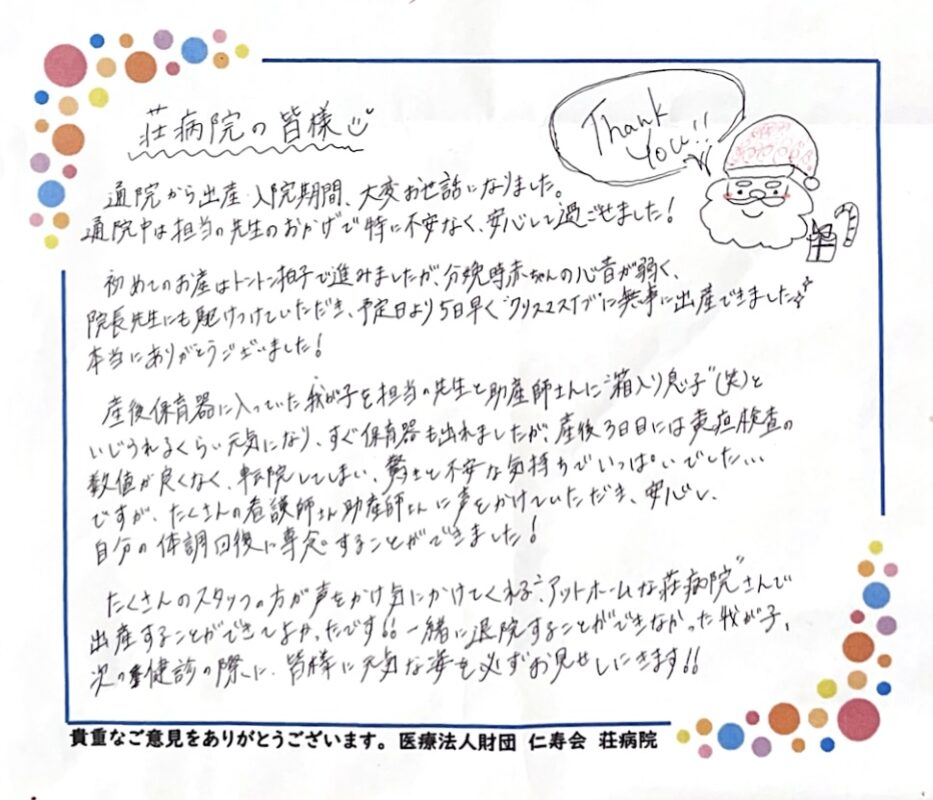 荘病院の皆様
Thank
You!!
通院から出産・入院期間、大変お世話になりました。
通院中は担当の先生のおかげで特に不安なく、安心して過ごせました！
初めてのお産はトントン拍子で進みましたが、分娩時赤ちゃんの心音が弱く、
院長先生にも駆けつけていただき、予定日より5日早く"クリスマスイブ"に無事に出産できました
本当にありがとうございました！
産後保育器に入っていた我が子を担当の先生と助産師さんに"箱入り息子"(笑)と
いじられるくらい元気になり、すぐ保育器も出れましたが、産後3日目には黄疸検査の
数値が良くなく、転院してしまい、驚きと不安な気持ちでいっぱいでした...
ですが、たくさんの看護師さん助産師さんに声をかけていただき、安心し、
自分の体調回復に専念することができました！
たくさんのスタッフの方が声をかけ気にかけてくれる"アットホームな荘病院"さんで
出産することができてよかったです!! 一緒に退院することができなかった我が子、
次の健診の際に、皆様に元気な姿を必ずお見せしにきます!!
貴重なご意見をありがとうございます。医療法人財団 仁寿会 荘病院